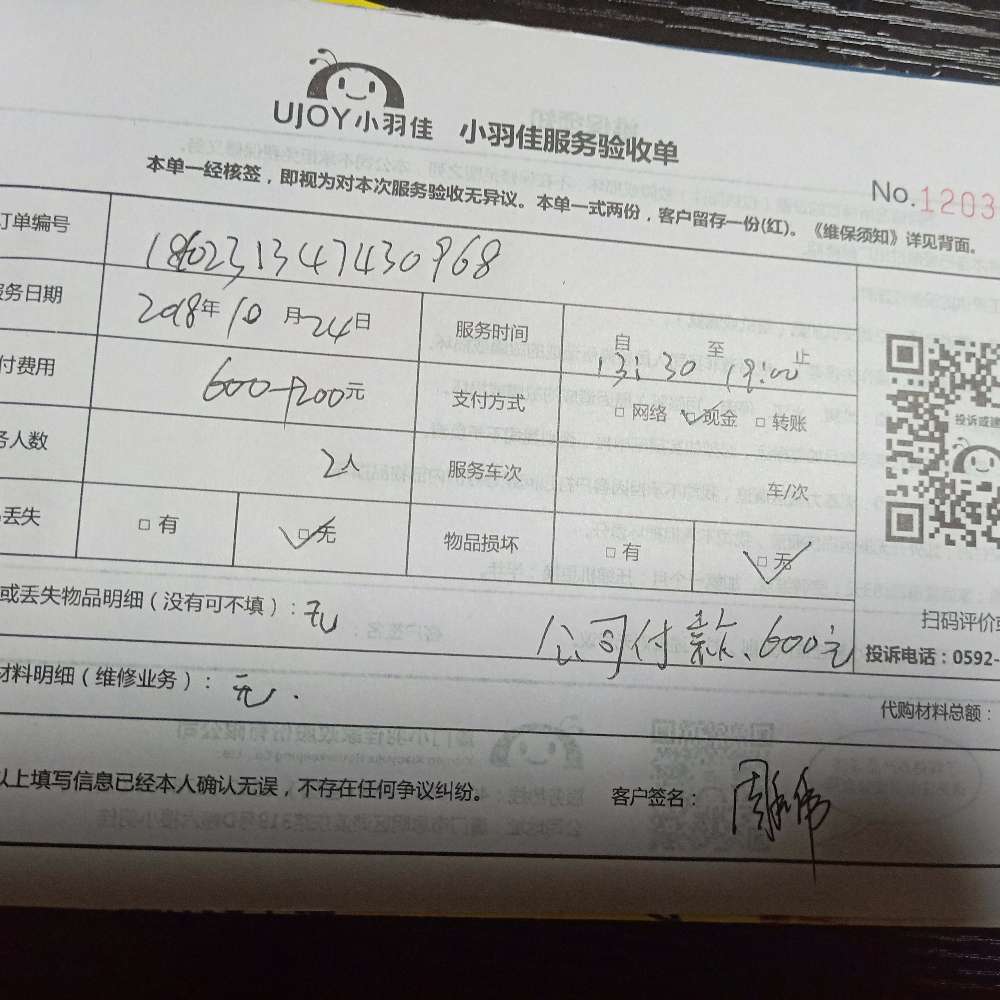 UJOY小羽佳 小羽佳服务验收单
No.1203
本单一经核签，即视为对本次服务验收无异议。本单一式两份，客户留存一份(红)。《维保须知》详见背面。
订单编号
服务日期 2018年10月24日 服务时间 自 13:30 至 19:00 止
付费用 600+200元 支付方式 □网络 ☑现金 □转账
务人数 2人 服务车次 车/次
丢失 □有 ☑无 物品损坏 □有 ☑无
投诉或建
扫码评价或
投诉电话：0592-
或丢失物品明细（没有可不填）：无
公司付款、600元
材料明细（维修业务）：无.
代购材料总额：
以上填写信息已经本人确认无误，不存在任何争议纠纷。 客户签名：